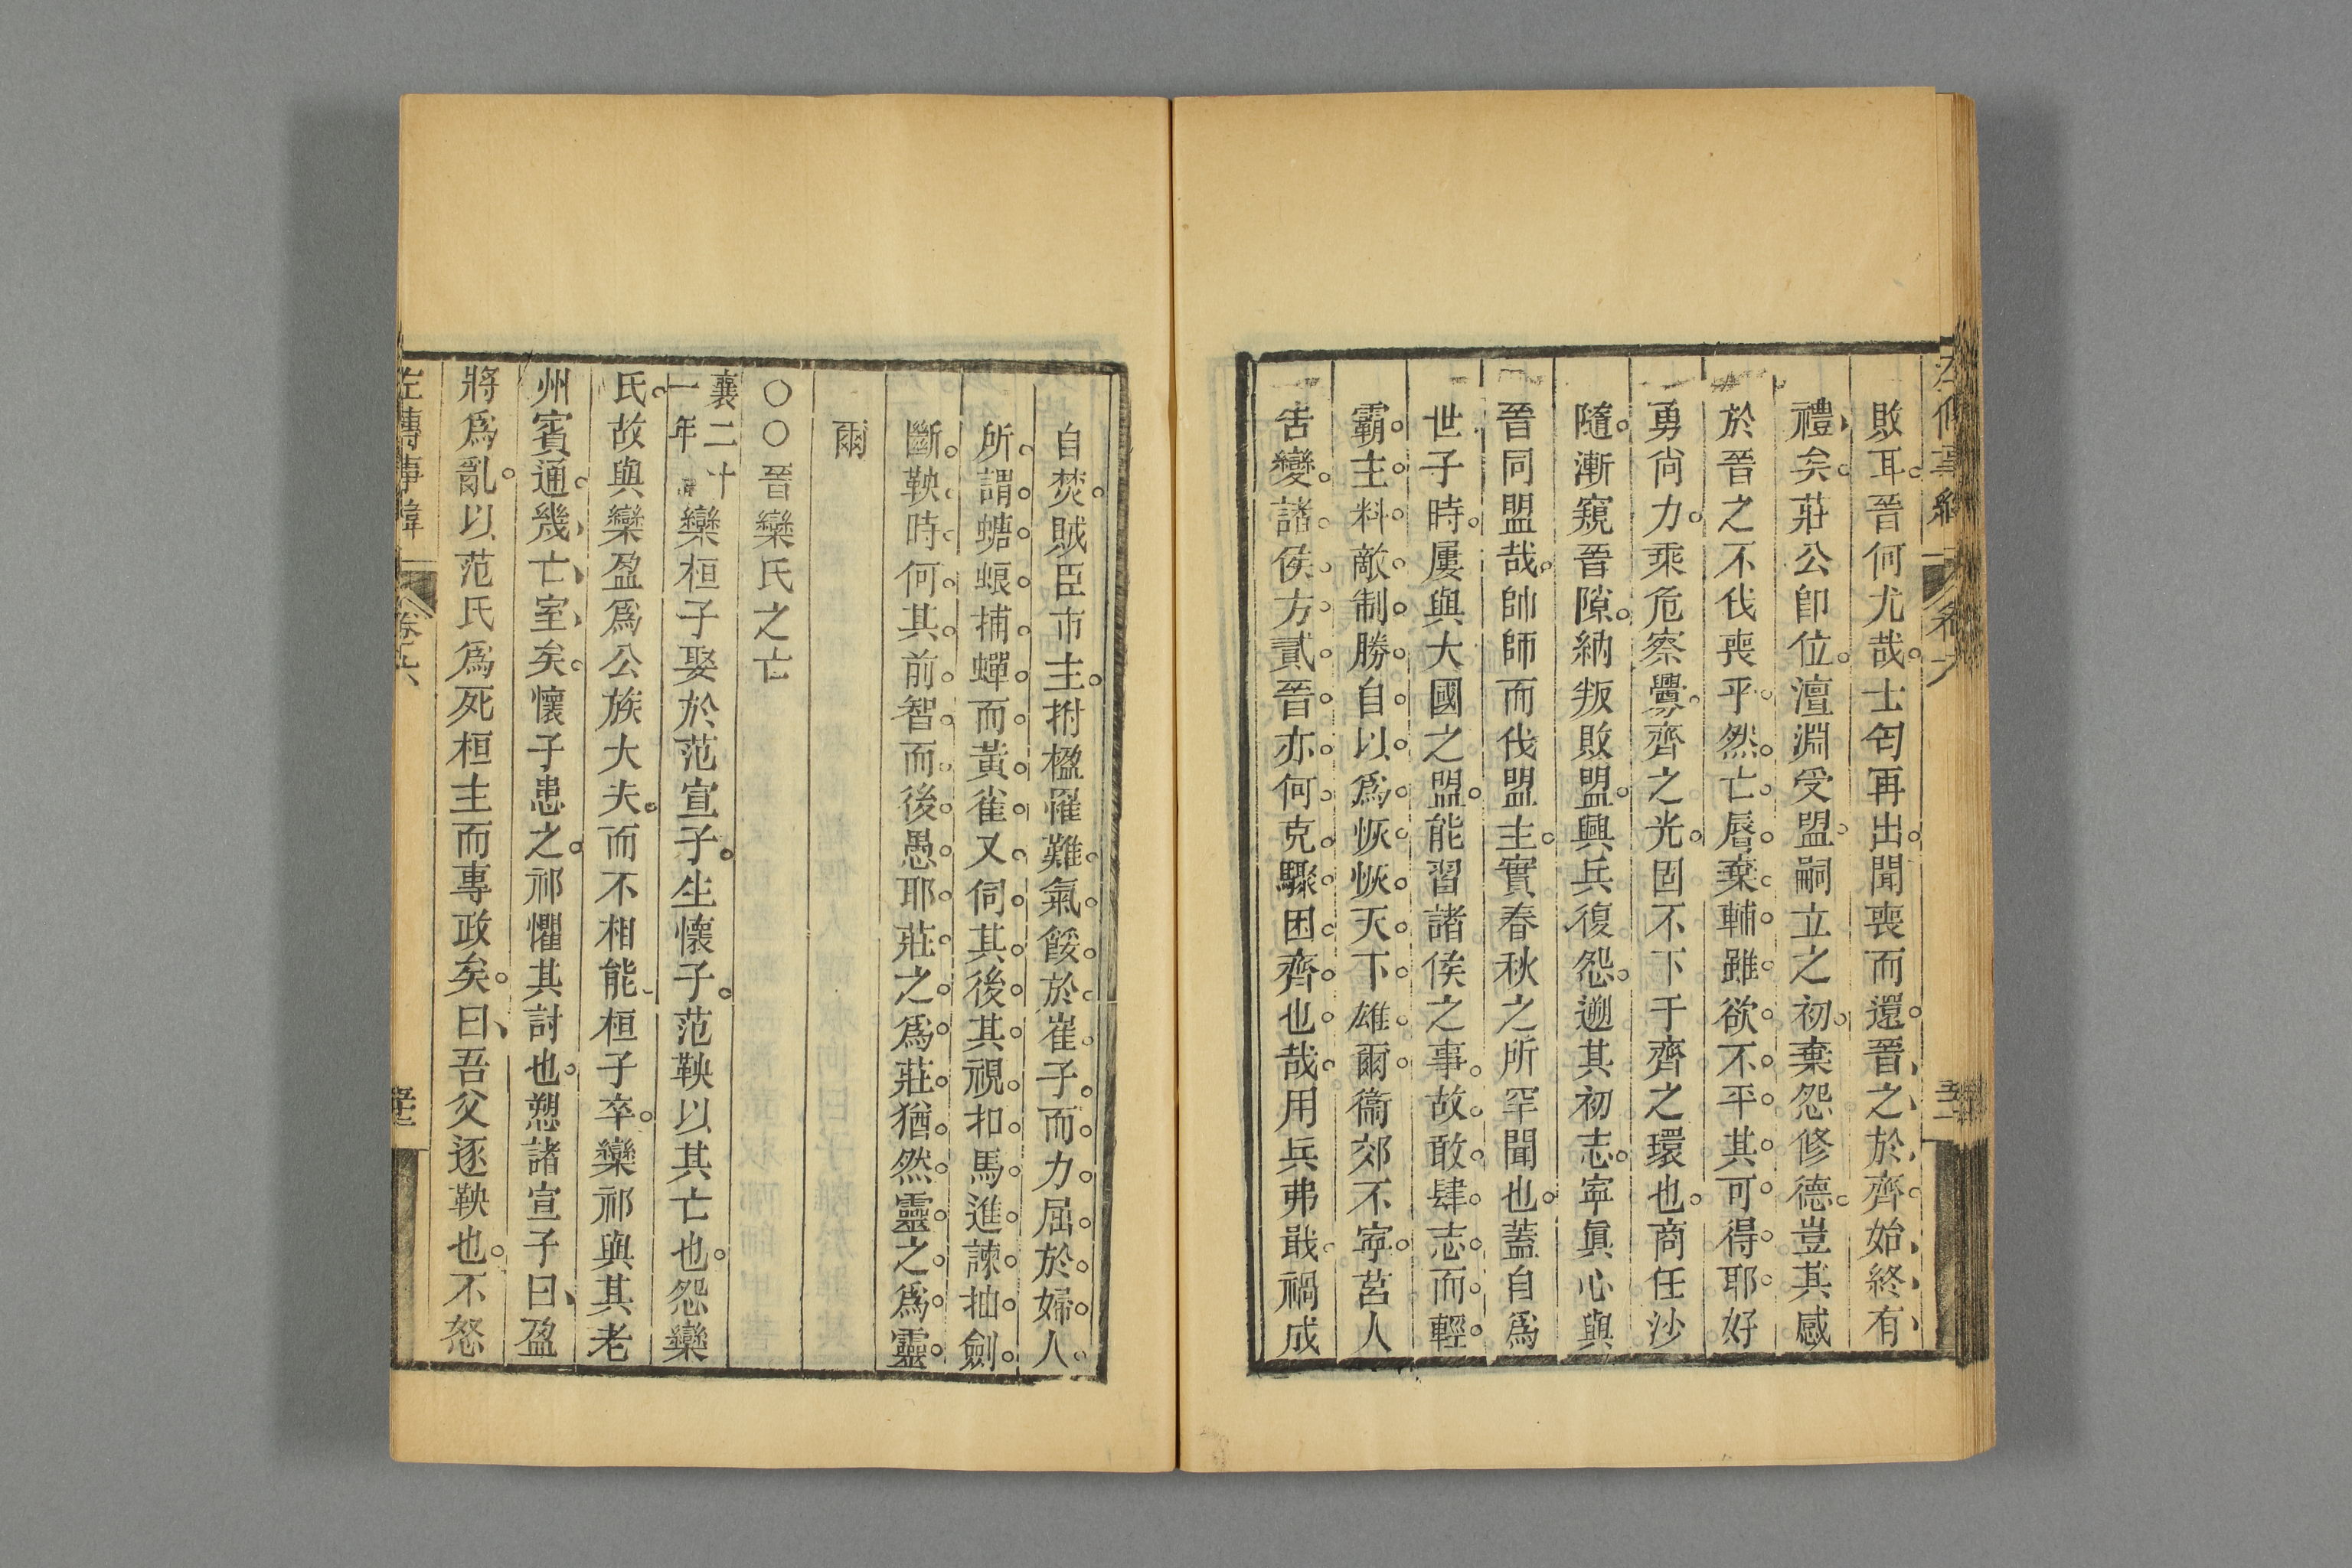 敗耳晉何尤哉士匄再出聞喪而還晉之於齊始終有
禮矣莊公卽位澶淵受盟嗣立之初棄怨修德豈其感
於晉之不伐喪乎然亡脣棄輔雖欲不平其可得耶好
勇尙力乘危察釁齊之光固不下于齊之環也商任沙
隨漸窺晉隙納叛敗盟興兵復怨遡其初志寧眞心與
晉同盟哉帥師而伐盟主實春秋之所罕聞也蓋自爲
世子時屢與大國之盟能習諸侯之事故敢肆志而輕
霸主料敵制勝自以爲恢恢天下雄爾衞郊不寧莒人
吿變諸侯方貳晉亦何克驟困齊也哉用兵弗戢禍成
自焚賊臣市主拊楹罹難氣餒於崔子而力屈於婦人
所謂螗蜋捕蟬而黃雀又伺其後其視扣馬進諫抽劍
斷鞅時何其前智而後愚耶莊之爲莊猶然靈之爲靈
爾
〇〇晉欒氏之亡
襄二十
一年
欒桓子娶於范宣子生懷子范鞅以其亡也怨欒
氏故與欒盈爲公族大夫而不相能桓子卒欒祁與其老
州賓通幾亡室矣懷子患之祁懼其討也愬諸宣子曰盈
將爲亂以范氏爲死桓主而專政矣曰吾父逐鞅也不怒
左傳事緯
卷六